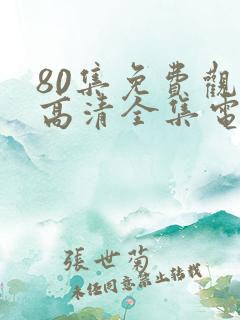 80集免費觀
高清全集電
張世菊
未經同意禁止轉載